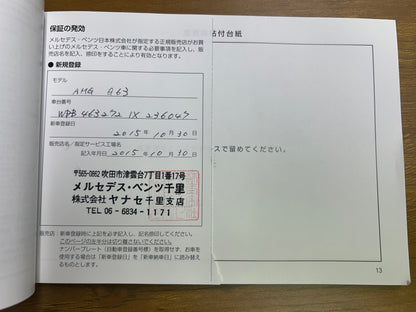 保証の発効
メルセデス・ベンツ日本株式会社が指定する正規販売店がお買
い上げのメルセデス・ベンツ車に関する必要事項を記入し、販
売店名を記入、捺印をすることにより有効となります。
● 新規登録
モデル
AMG G63
車台番号
WDB 463272 1X 236047
新車登録日
2015 年 10 月 30 日
販売店名/指定サービス工場名
記入年月日 2015 年 10 月 30 日
〒565-0862 吹田市津雲台7丁目1番17号
メルセデス・ベンツ千里
株式会社 ヤナセ千里支店
TEL 06-6834-1171
販売店:新車登録時に上記を必ず記入し、記名捺印してください。
このページの左半分は切り離さないでください。
ナンバープレート(自動車登録番号標)を取得せず、お車を
使用する場合は「新車登録日」を「新車納車日」に読み替え
るものとします。
貼付台紙
スで留めてください。
13